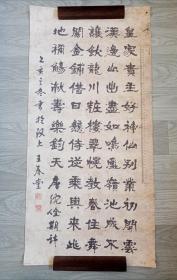 皇家貴主好神仙別業初開雲
漢邊山出盡如鳴鳳嶺池成不
讓飲龍川粧樓翠幌教春住舞
閣金鋪借日懸敬從乘輿來此
地稱觴獻壽樂鈞天 唐沈佺期詩
乙亥之冬書於上王堂